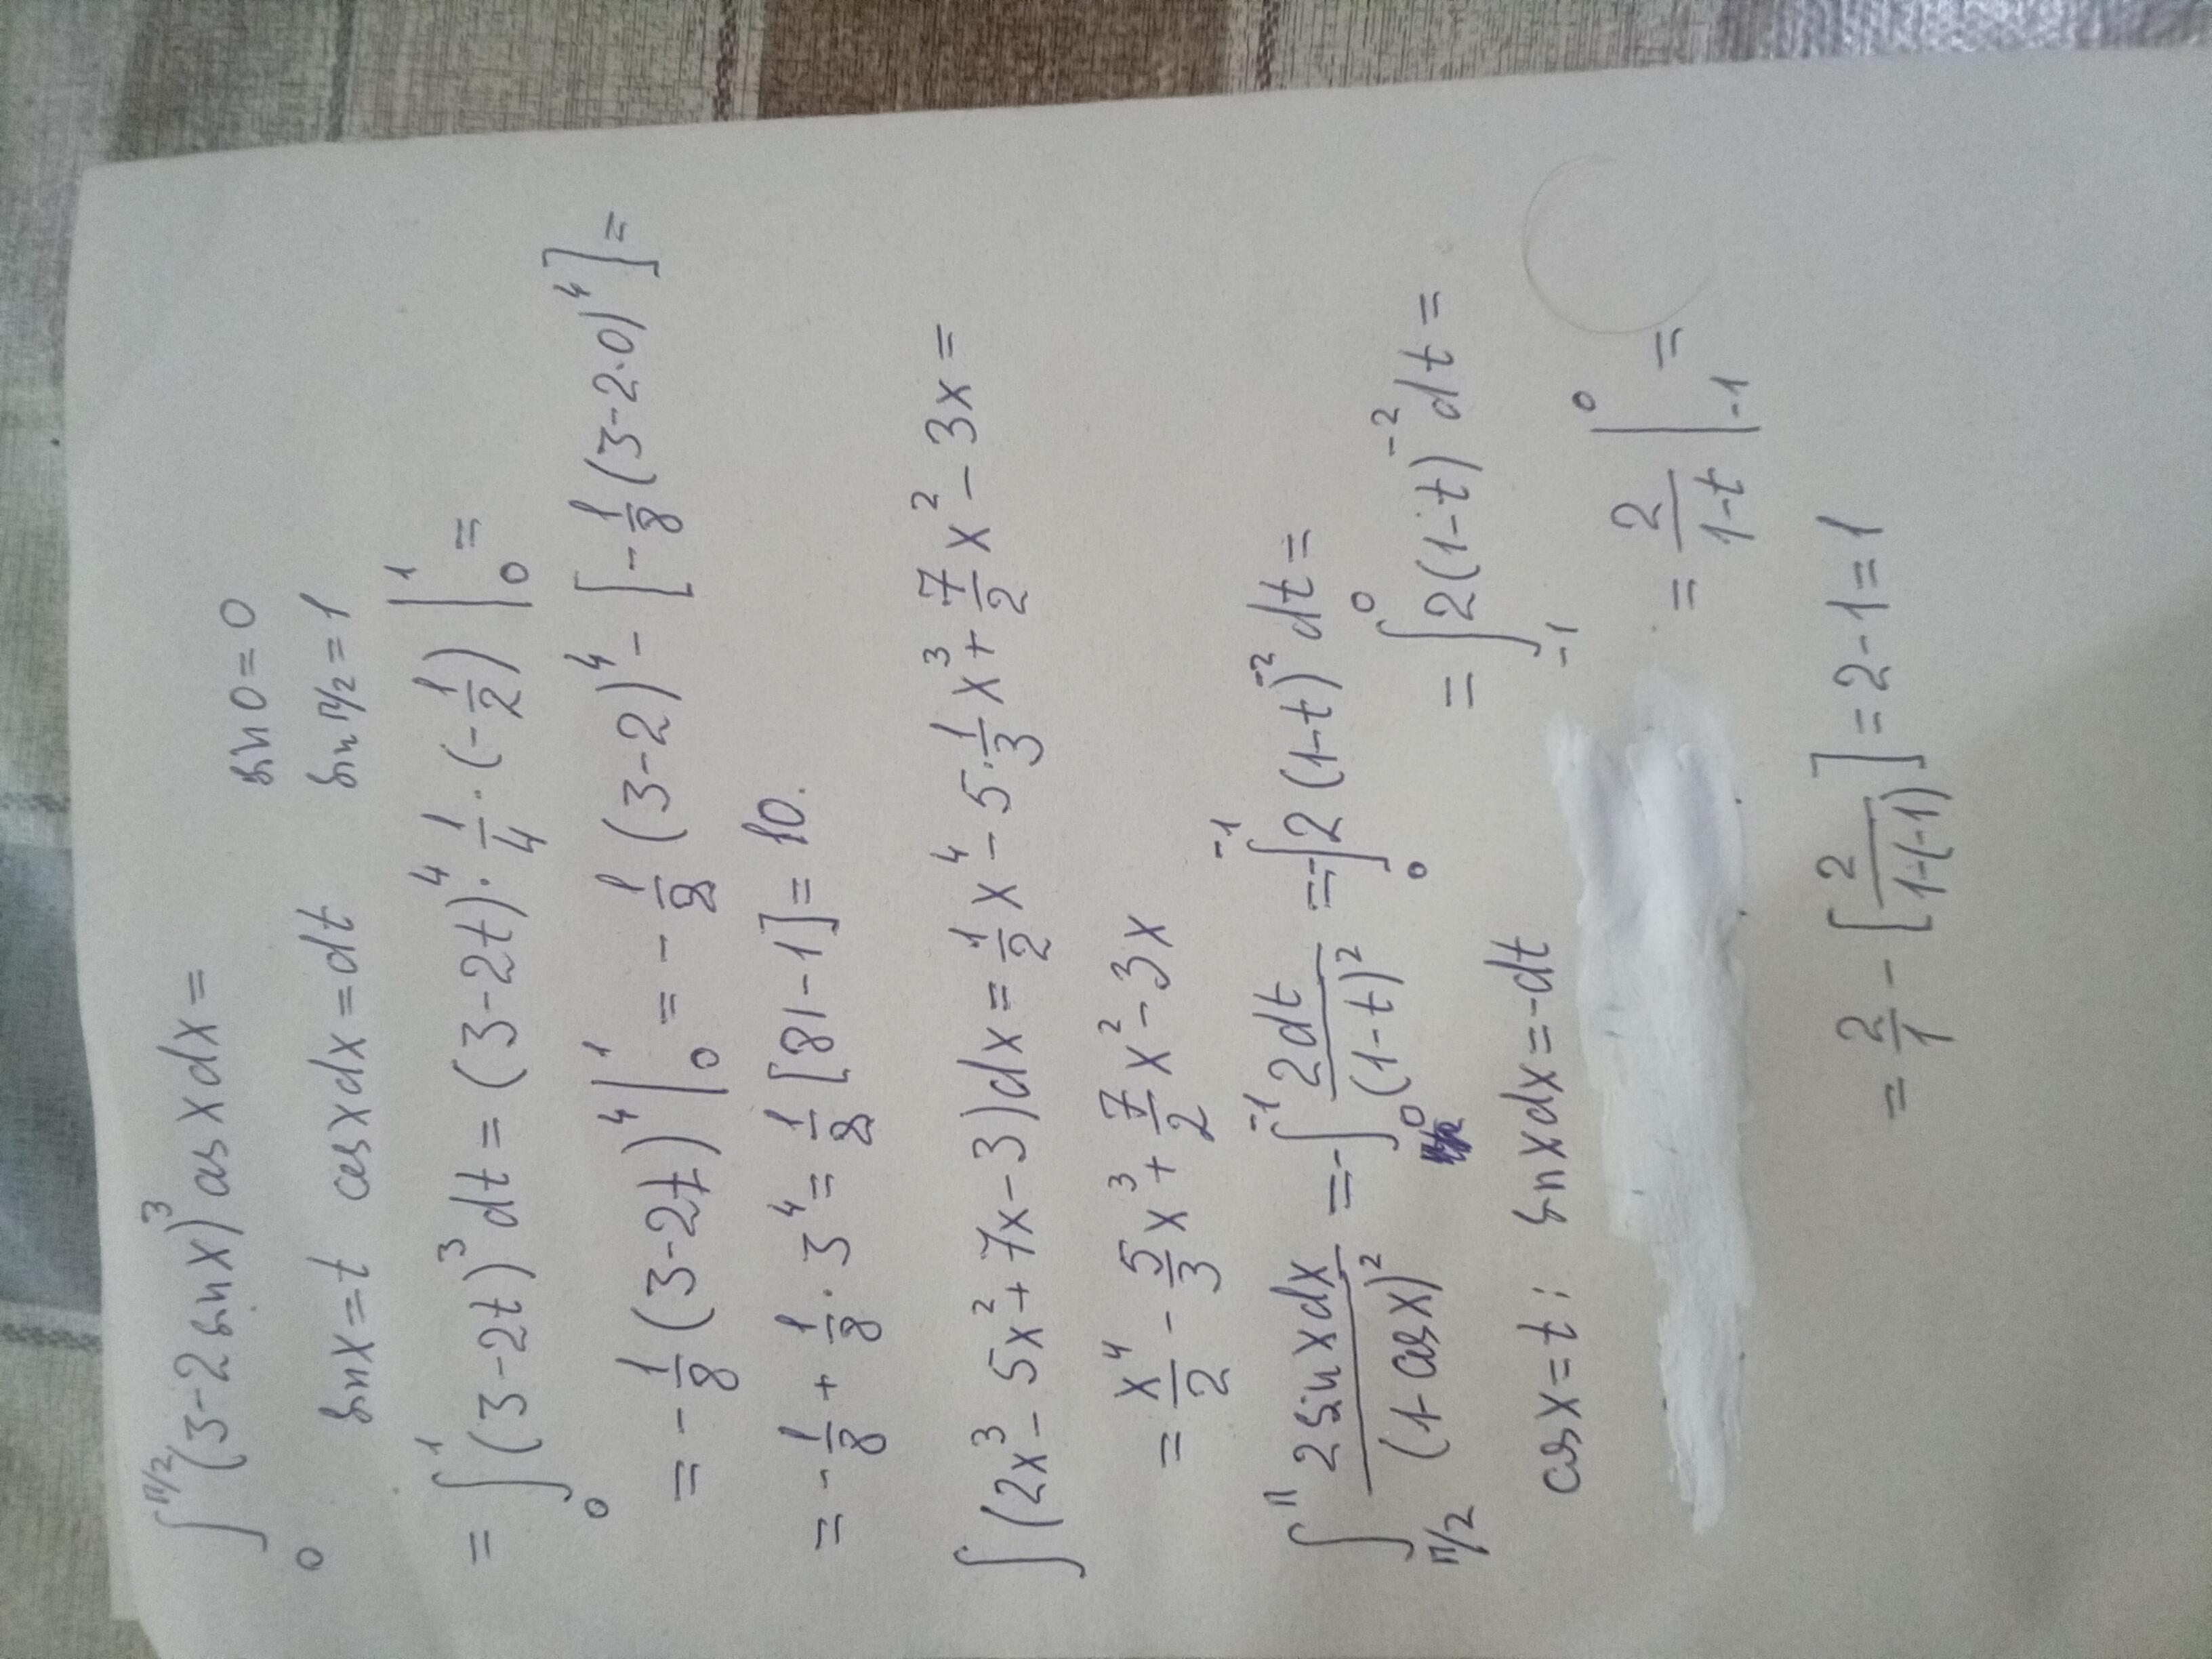 ∫₀^{π/2} (3-2 sin x)³ cos x dx =
sin x = t cos x dx = dt sin 0 = 0
sin π/2 = 1
= ∫₀¹ (3-2t)³ dt = (3-2t)⁴ · 1/4 · (-1/2) |₀¹ =
= - 1/8 (3-2t)⁴ |₀¹ = - 1/8 (3-2)⁴ - [- 1/8 (3-2·0)⁴] =
= - 1/8 + 1/8 · 3⁴ = 1/8 [81-1] = 10.
∫ (2x³ - 5x² + 7x - 3) dx = 1/2 x⁴ - 5 · 1/3 x³ + 7/2 x² - 3x =
= x⁴/2 - 5/3 x³ + 7/2 x² - 3x
∫_{π/2}^{π} 2 sin x dx / (1-cos x)² = - ∫₀^{-1} 2dt / (1-t)² = - ∫₀^{-1} 2 (1-t)⁻² dt =
cos x = t ; sin x dx = -dt = ∫₋₁⁰ 2(1-t)⁻² dt =
= 2/(1-t) |₋₁⁰ =
= 2/1 - [2/(1-(-1))] = 2-1 = 1